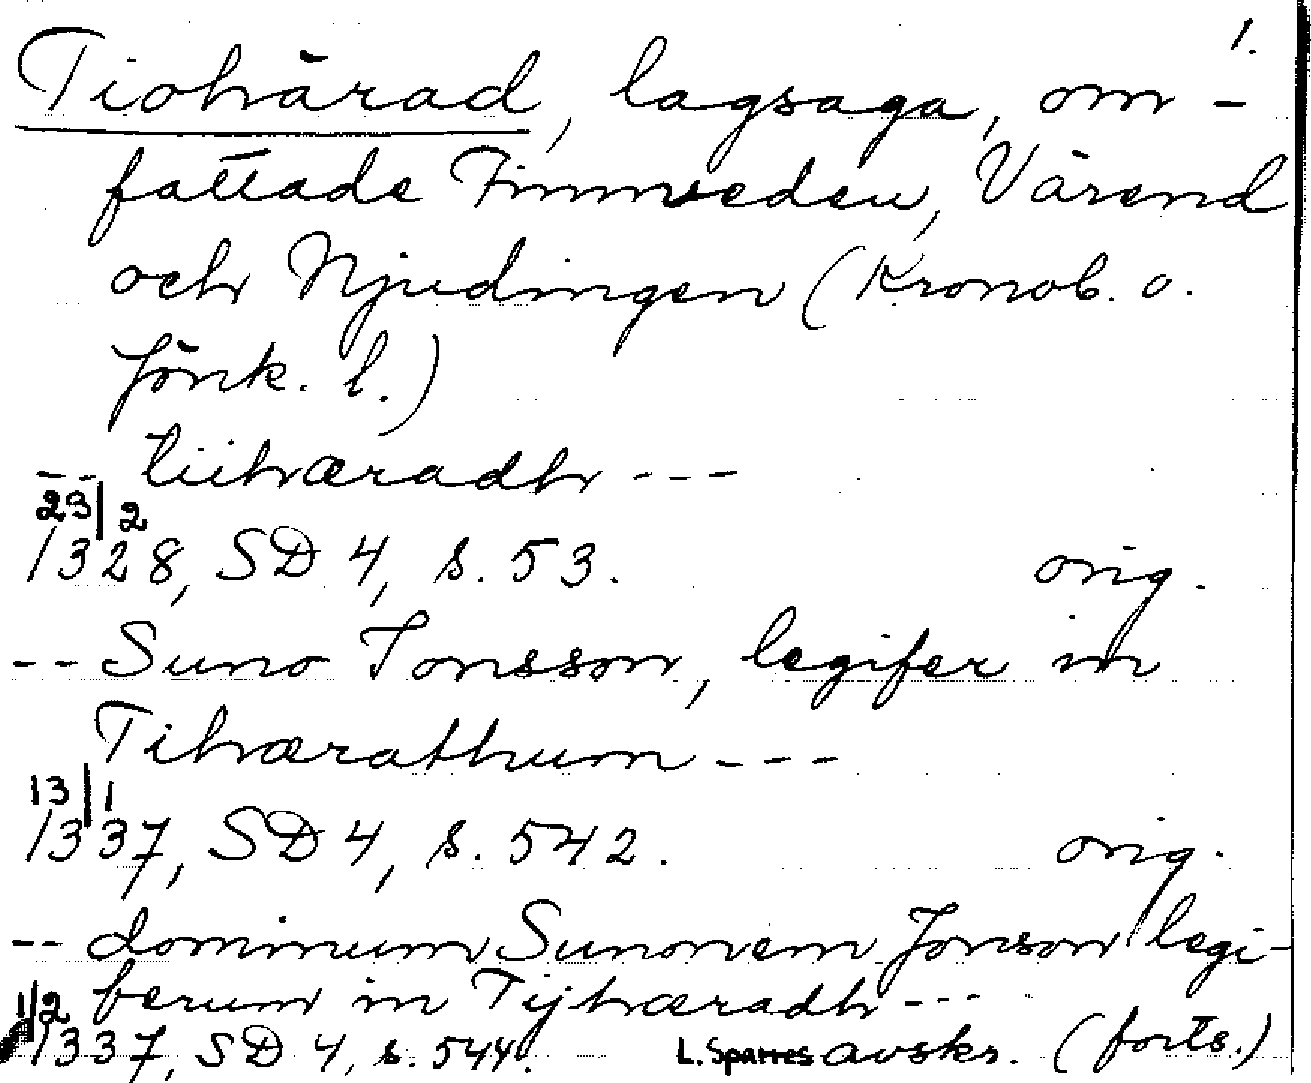 1.
Tiohärad, lagsaga, om-
fattade Finnveden, Värend
och Njudingen (Kronob. o.
Jönk. l.)
-- tiihæradh ---
23/2
1328, SD 4, s. 53. orig.
-- Suno Jonsson, legifer in
Tihærathum ---
13/1
1337, SD 4, s. 542. orig.
-- dominum Sunonem Jonson legi-
ferum in Tijhæradh ---
1/2
1337, SD 4, s. 544. L. Sparres avskr. (forts.)